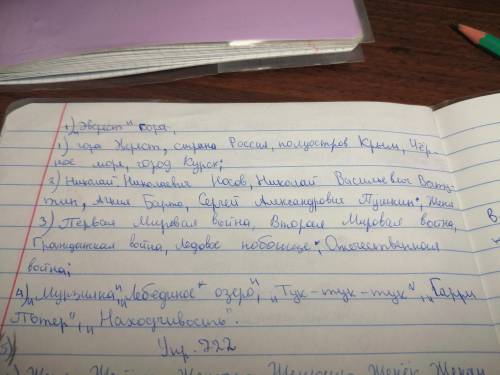 1) „Эверест" гора,
1) гора Эверест, страна Россия, полуостров Крым, Чёр-
ное море, город Курск;
2) Николай Николаевич Носов, Николай Васильевич
Агния Барто, Сергей Александрович Пушкин; Женя
3) Первая Мировая война, Вторая Мировая война,
Гражданская война, Ледовое побоище; Отечественная
война;
4) „Мурзилка", „Лебединое озеро", „Тук-тук-тук", „Гарри
Потер", „Находчивость".
Упр. 222
5)
В